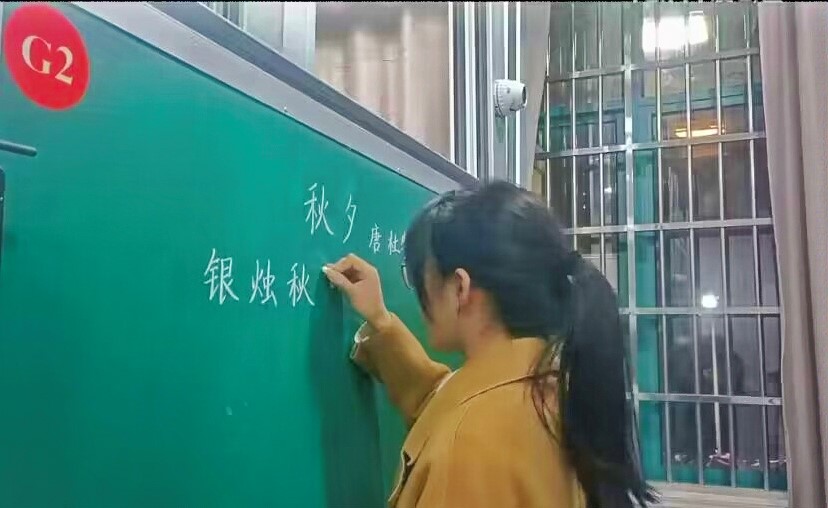 G2
秋夕
唐 杜
银烛秋